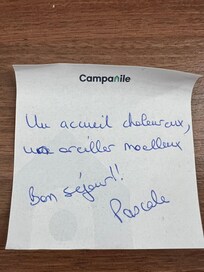 Campanile
Un accueil chaleureux,
un oreiller moelleux
Bon séjour!!
Pascale